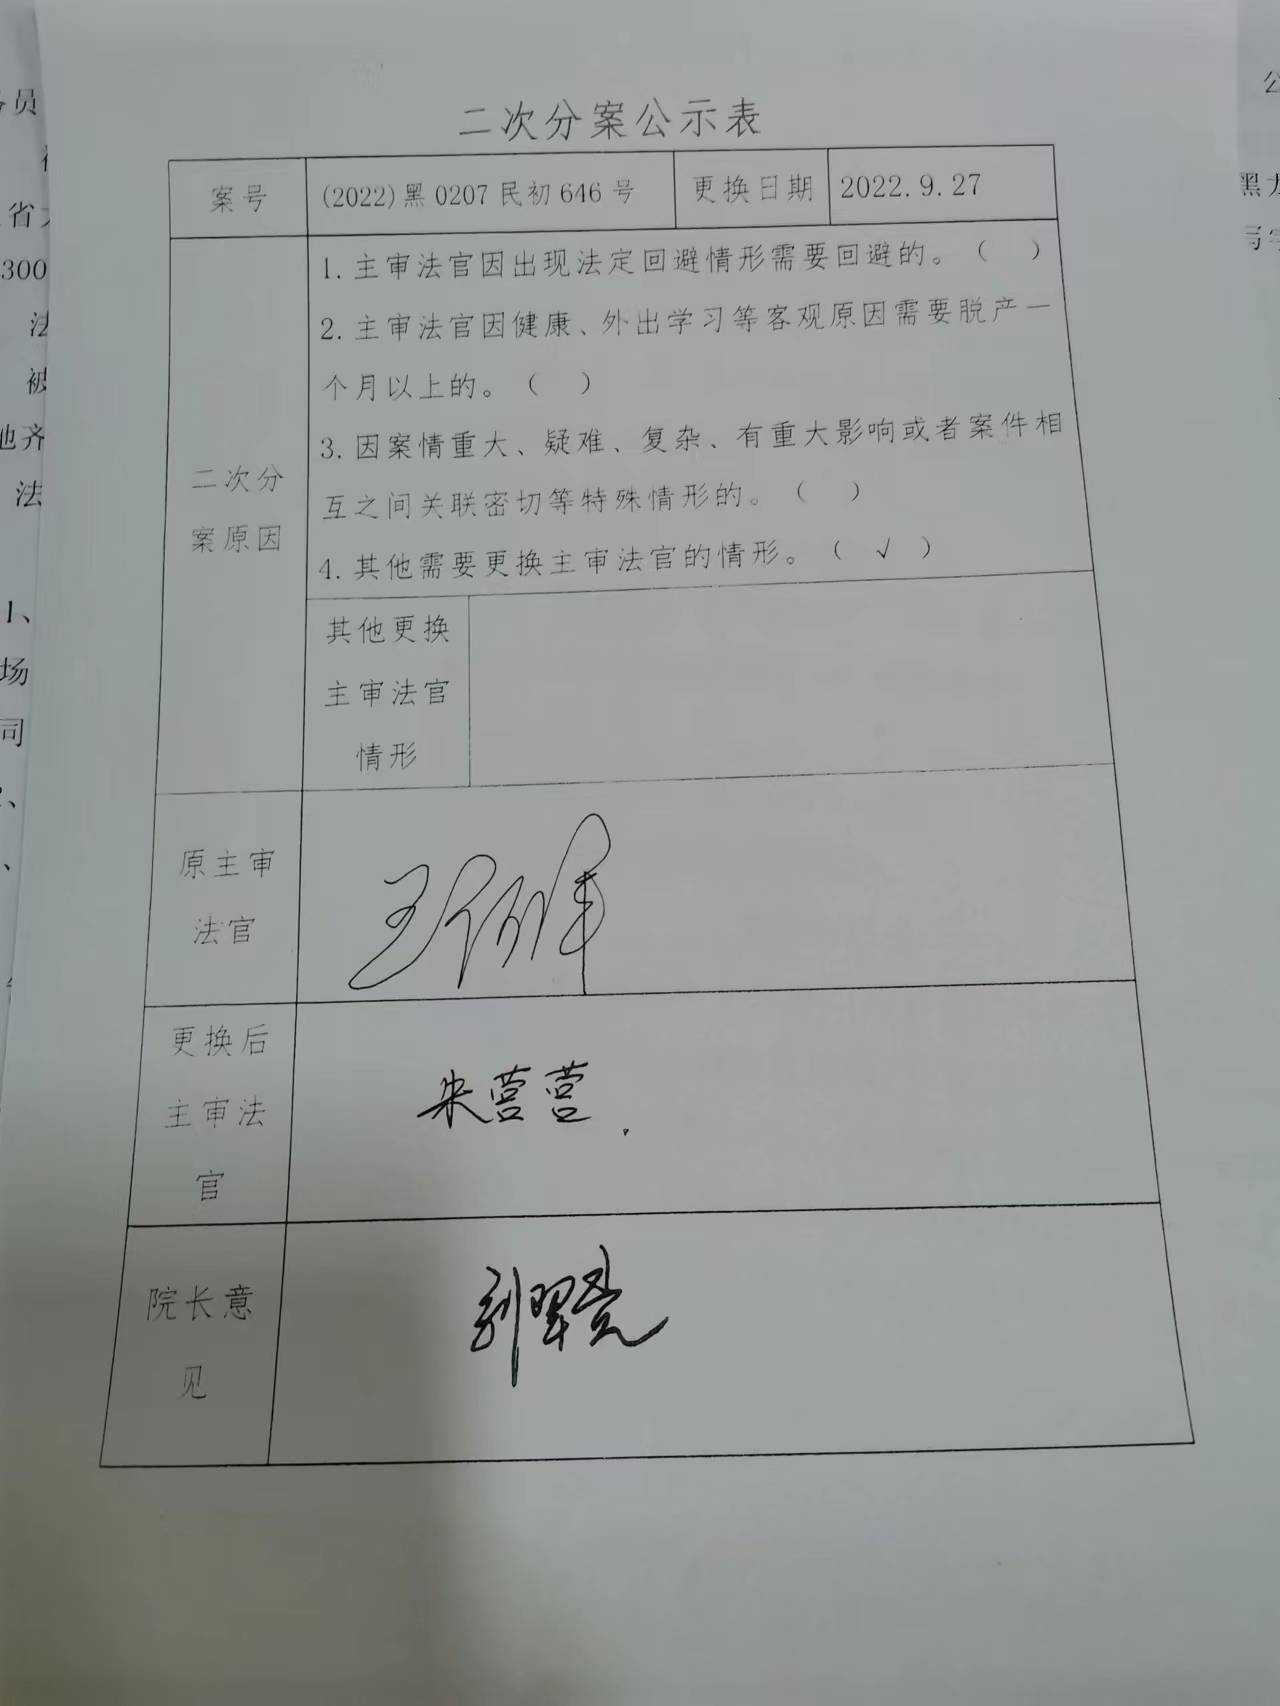 二次分案公示表
案号
(2022)黑0207民初646号
更换日期
2022.9.27
二次分
案原因
1.主审法官因出现法定回避情形需要回避的。（ ）
2.主审法官因健康、外出学习等客观原因需要脱产一
个月以上的。（ ）
3.因案情重大、疑难、复杂、有重大影响或者案件相
互之间关联密切等特殊情形的。（ ）
4.其他需要更换主审法官的情形。（ √ ）
其他更换
主审法官
情形
原主审
法官
更换后
主审法
官
朱营营
院长意
见
员
省
300
法
被
地齐
法
1、
场
司
黑